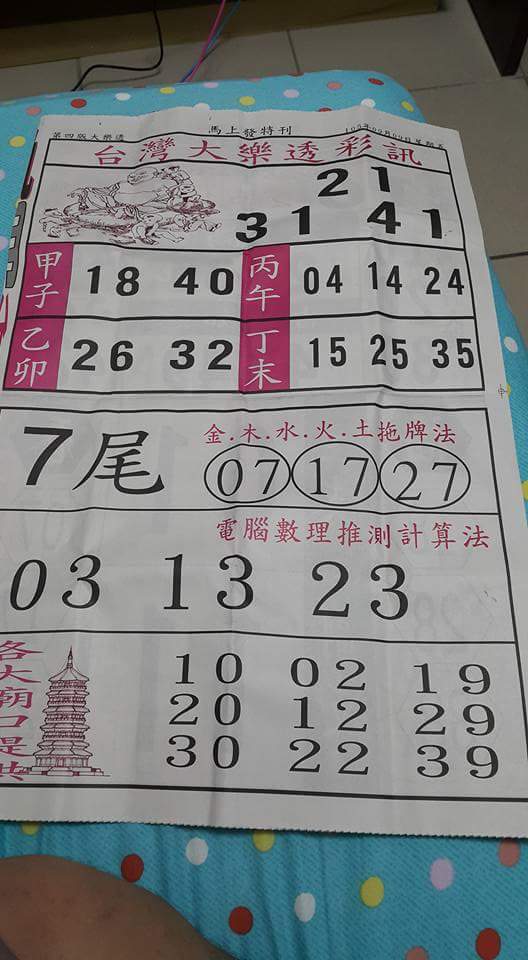 第四版大樂透
馬上發特刊
台灣大樂透彩訊
21
31 41
甲子 18 40 丙午 04 14 24
乙卯 26 32 丁末 15 25 35
7尾
金.木.水.火.土拖牌法
07 17 27
電腦數理推測計算法
03 13 23
各大廟口提供
10 02 19
20 12 29
30 22 39